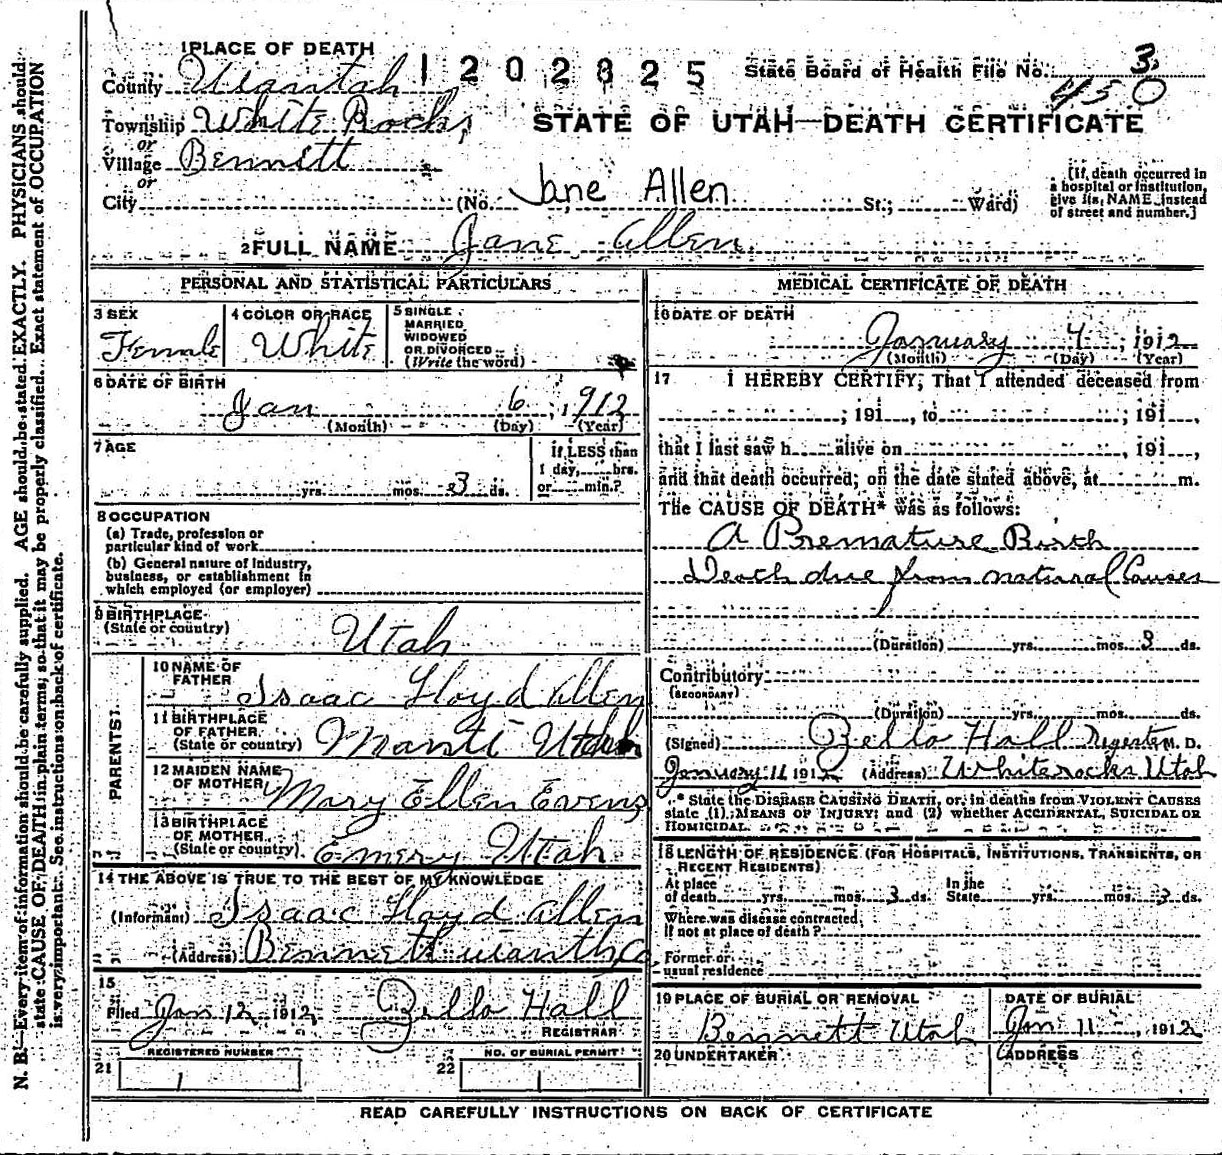 1 PLACE OF DEATH
County Uiantah 1202825 State Board of Health File No. 3
450
Township White Rocks,
or
STATE OF UTAH—DEATH CERTIFICATE
Village Bennett
or
City (No. Jane Allen St.; Ward)
[If, death occurred in a hospital or institution, give its NAME instead of street and number.]
2 FULL NAME Jane Allen
PERSONAL AND STATISTICAL PARTICULARS
3 SEX
Female
4 COLOR OR RACE
White
5 SINGLE
MARRIED
WIDOWED
OR DIVORCED
(Write the word)
6 DATE OF BIRTH
Jan 6, 1912
(Month) (Day) (Year)
7 AGE
yrs. mos. 3 ds.
If LESS than
1 day, hrs.
or min.?
8 OCCUPATION
(a) Trade, profession or
particular kind of work
(b) General nature of industry,
business, or establishment in
which employed (or employer)
9 BIRTHPLACE
(State or country)
Utah
PARENTS
10 NAME OF
FATHER
Isaac Lloyd Allen
11 BIRTHPLACE
OF FATHER
(State or country) Manti Utah
12 MAIDEN NAME
OF MOTHER Mary Ellen Evens
13 BIRTHPLACE
OF MOTHER
(State or country) Emery Utah
14 THE ABOVE IS TRUE TO THE BEST OF MY KNOWLEDGE
(Informant) Isaac Lloyd Allen
(Address) Bennett Uiantha Co
15
Filed Jan 12, 1912 Bella Hall
REGISTRAR
REGISTERED NUMBER
21 1
NO. OF BURIAL PERMIT
22 1
MEDICAL CERTIFICATE OF DEATH
16 DATE OF DEATH
January 4, 1912
(Month) (Day) (Year)
17 I HEREBY CERTIFY, That I attended deceased from
; 191 , to ; 191 ,
that I last saw h alive on , 191 ,
and that death occurred, on the date stated above, at m.
The CAUSE OF DEATH* was as follows:
A Premature Birth
Death due from natural Causes
(Duration) yrs. mos. 3 ds.
Contributory
(SECONDARY)
(Duration) yrs. mos. ds.
(Signed) Bella Hall Regester M. D.
January 11 1912 (Address) Whiterocks Utah
* State the DISEASE CAUSING DEATH, or, in deaths from VIOLENT CAUSES
state (1) MEANS OF INJURY; and (2) whether ACCIDENTAL, SUICIDAL OR
HOMICIDAL.
18 LENGTH OF RESIDENCE (FOR HOSPITALS, INSTITUTIONS, TRANSIENTS, OR
RECENT RESIDENTS)
At place
of death yrs. mos. 3 ds. In the
State yrs. mos. 3 ds.
Where was disease contracted,
If not at place of death?
Former or
usual residence
19 PLACE OF BURIAL OR REMOVAL
Bennett Utah
DATE OF BURIAL
Jan 11, 1912
20 UNDERTAKER
ADDRESS
READ CAREFULLY INSTRUCTIONS ON BACK OF CERTIFICATE
N. B.—Every item of information should be carefully supplied. AGE should be stated EXACTLY. PHYSICIANS should
state CAUSE OF DEATH in plain terms, so that it may be properly classified. Exact statement of OCCUPATION
is very important. See instructions on back of certificate.